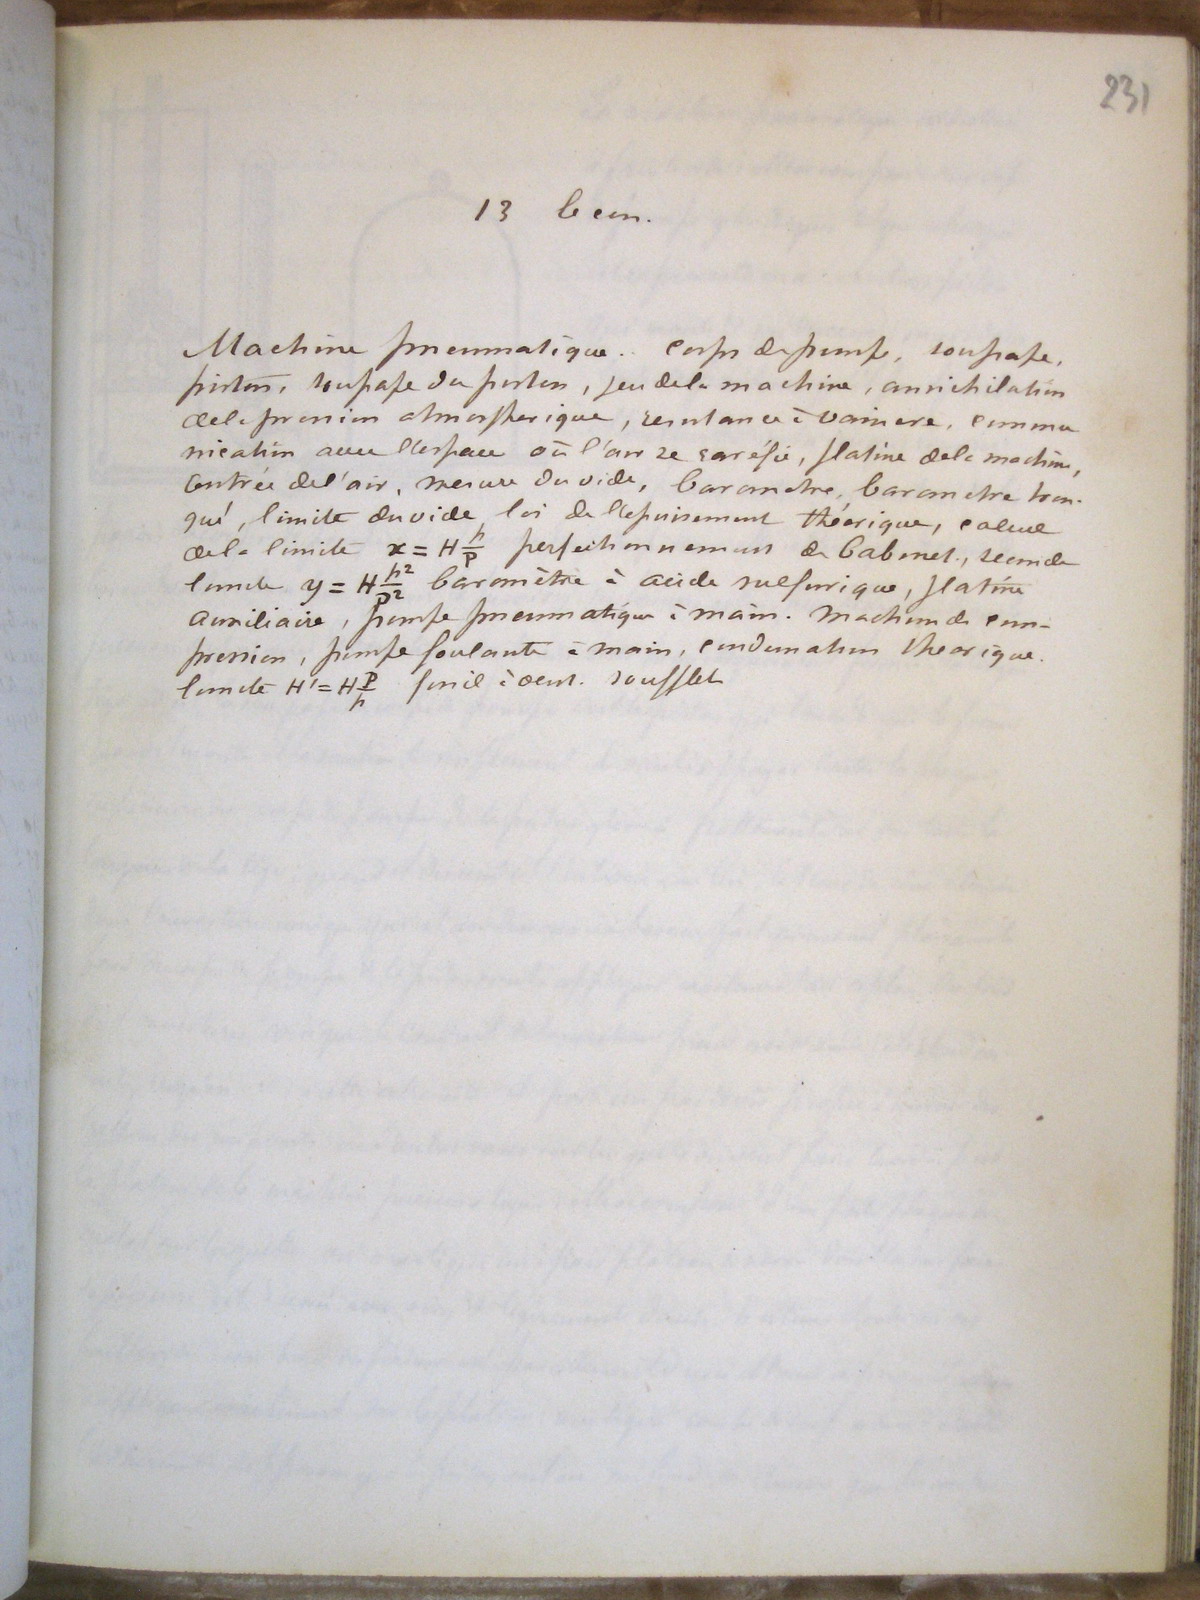 231
13 leçon.
Machine pneumatique. Corps de pompe, soupape,
piston, soupape du piston, jeu de la machine, annichilation
de la pression atmospherique, resistance à vaincre, commu
nication avec l'espace où l'air se raréfie, platine de la machine,
entrée de l'air, mesure du vide, barometre, barometre tron-
qué, limite du vide, loi de l'epuisement théorique, calcul
de la limite x = H h/P perfectionnement de Babinet, seconde
limite y = H h²/P² baromètre à acide sulfurique, platine
auxiliaire, pompe pneumatique à main. Machine de com-
pression, pompe foulante à main, condensation theorique.
limite H' = H P/h fusil à vent. soufflet